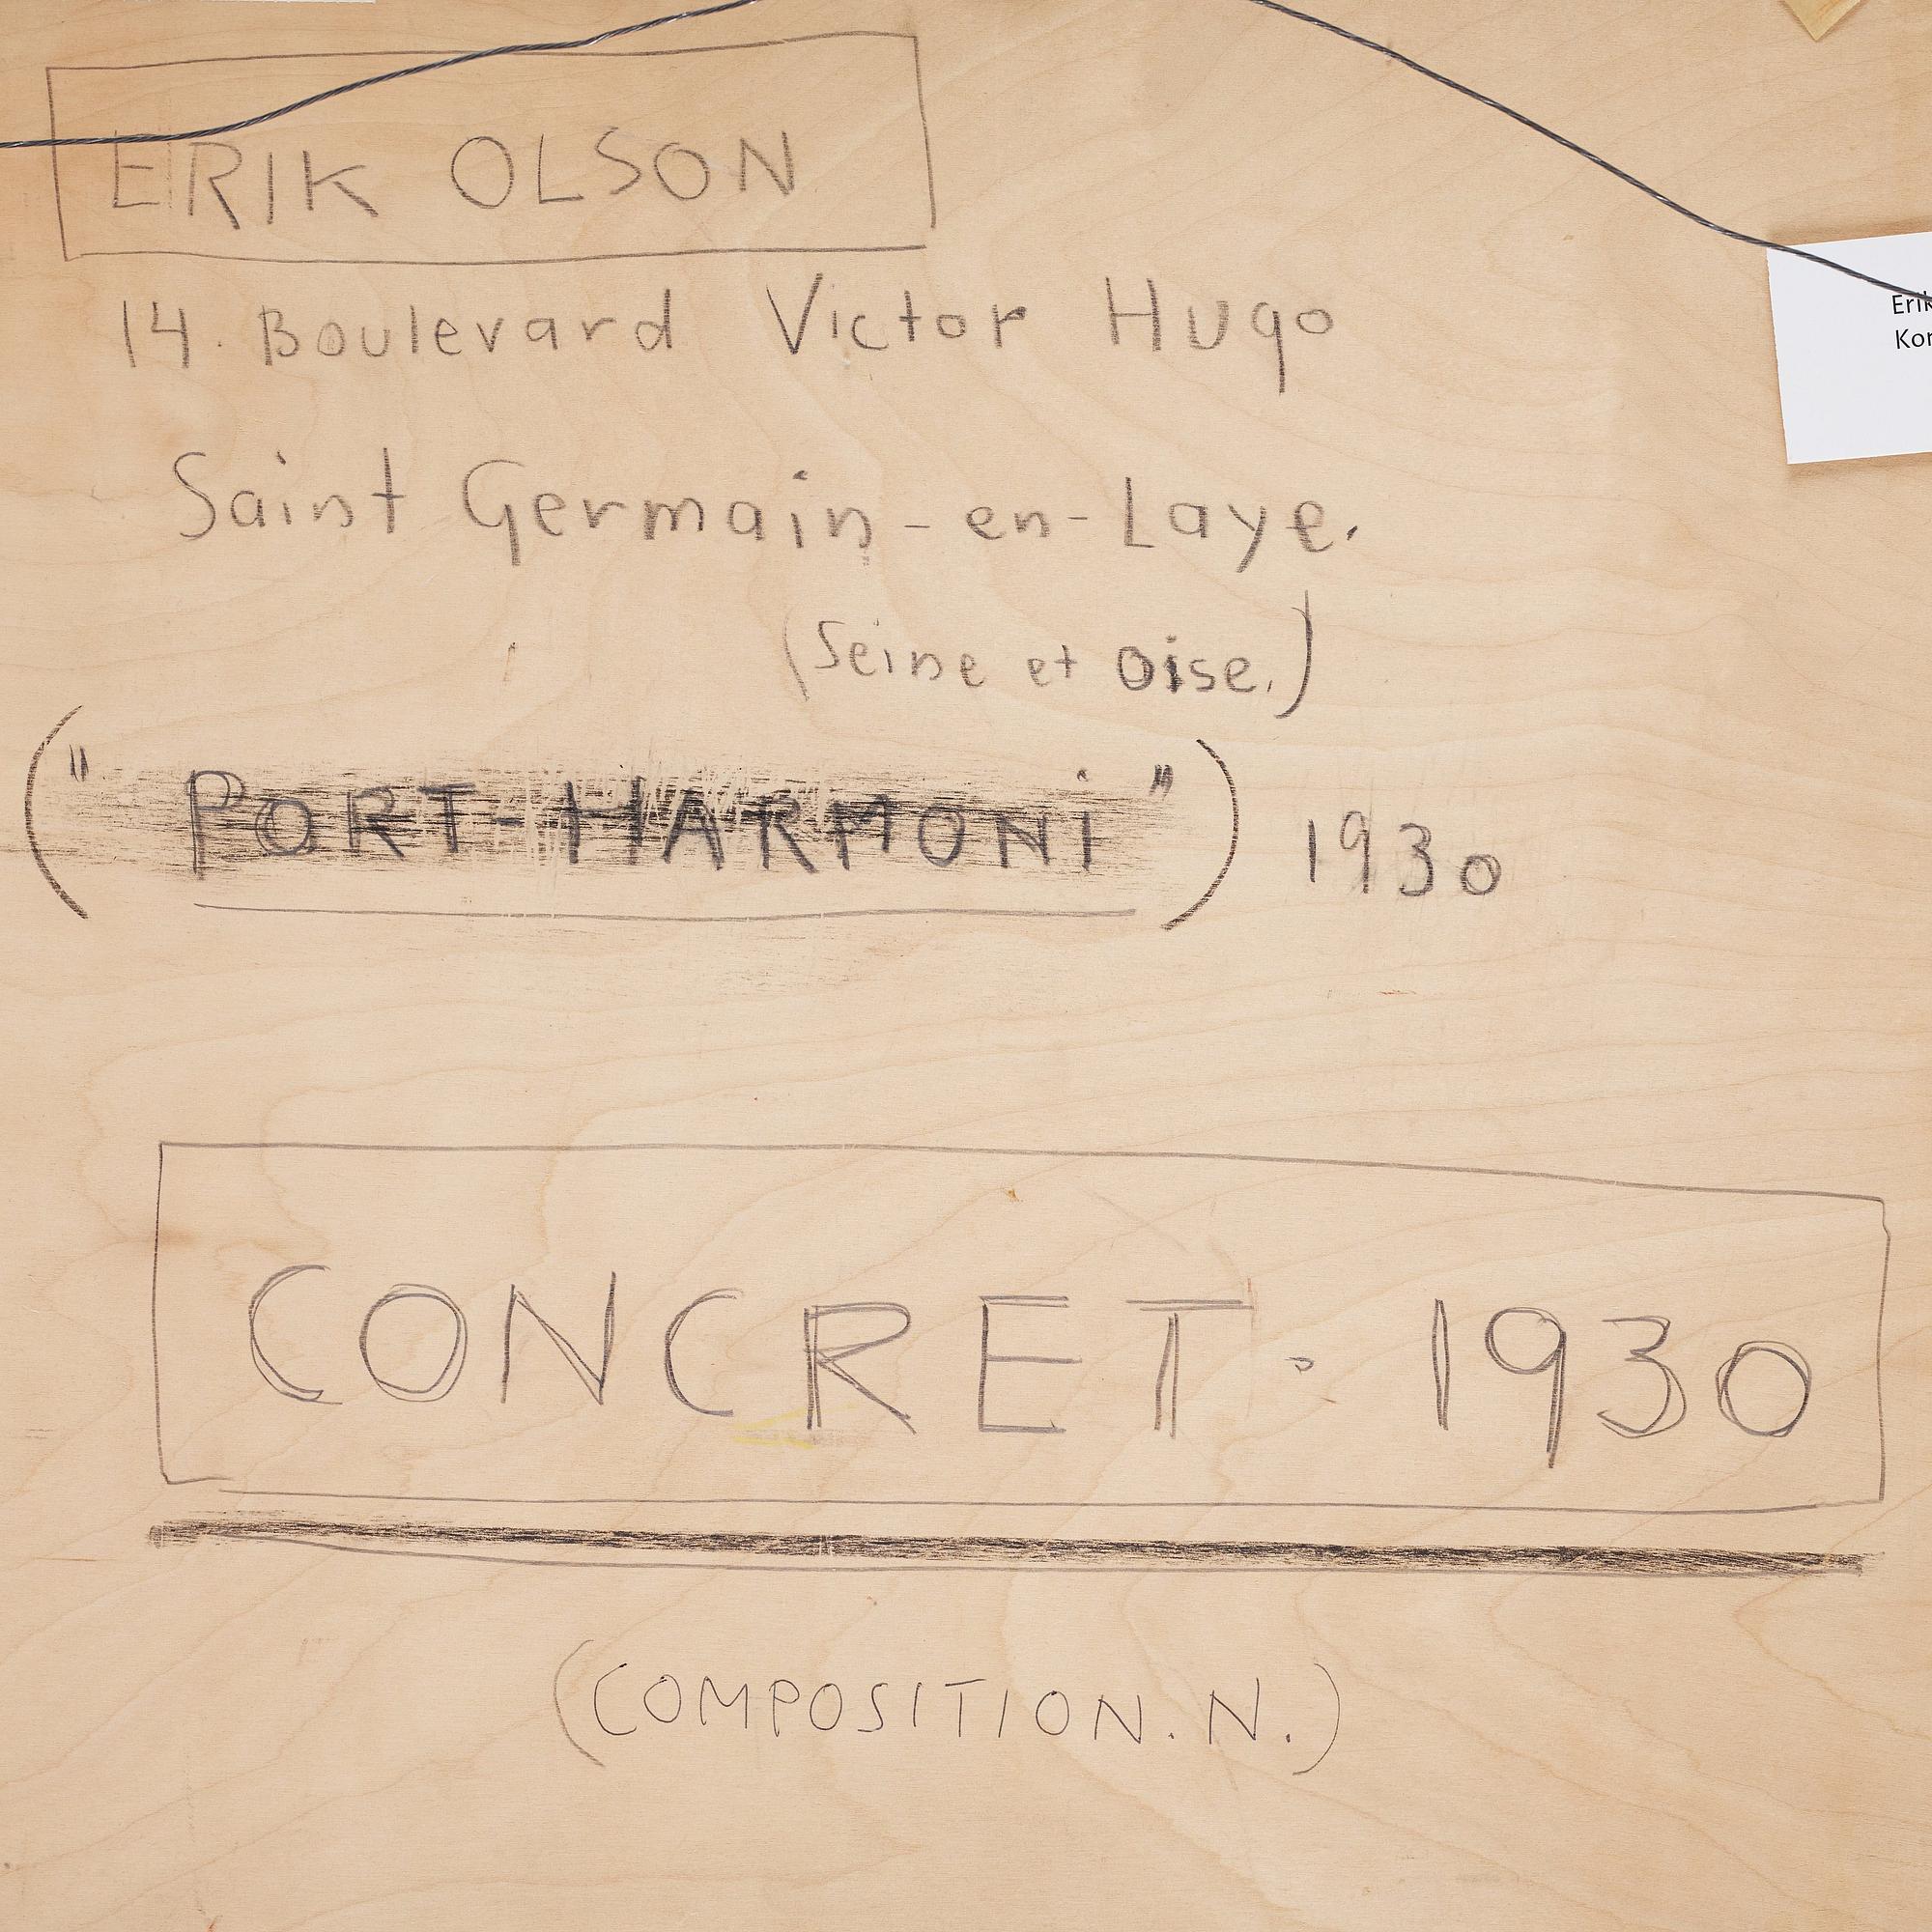 ERIK OLSON
14. Boulevard Victor Hugo
Erik
Saint Germain-en-Laye.
(Seine et Oise.)
("PORT-HARMONi") 1930
CONCRET. 1930
(COMPOSITION. N.)